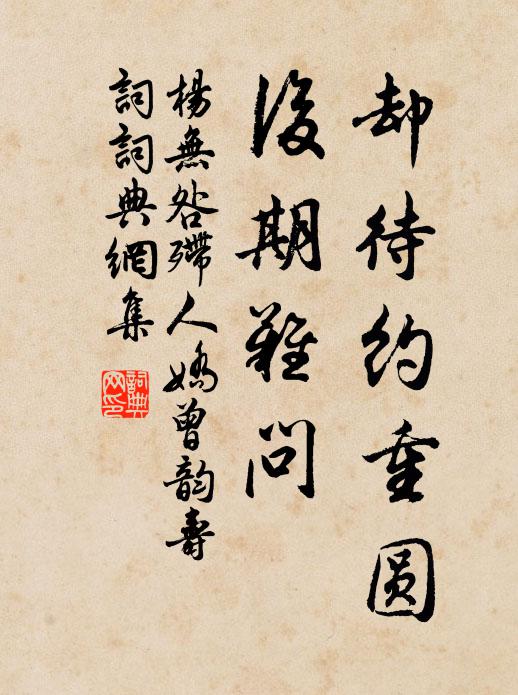 却待约重圆
后期难问
杨无咎殢人娇曾韵寿
词词典网集
词典网印